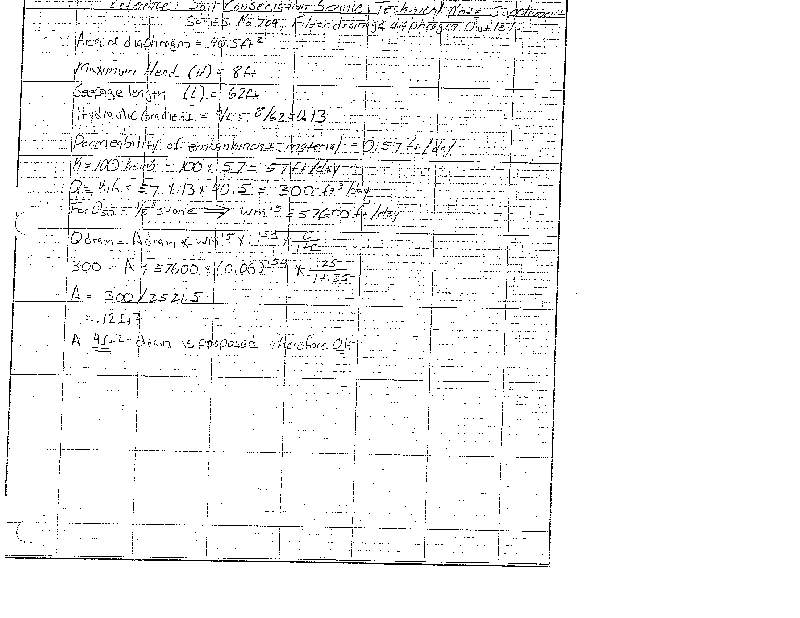 Reference: Soil Conservation Service, Technical Note
Series No. 709, Filter drainage diaphragm
Area of diaphragm = 40.5 ft²
Maximum Head (H) = 8 ft
Seepage length (L) = 62 ft
Hydraulic Gradient = H/L = 8/62 = 0.13
Permeability of embankment material = 0.57 ft/day
K = 100 = 100 x .57 = 57 ft/day
Q = K i A = 57 x .13 x 40.5 = 300 ft³/day
For D50 = stone ⟹ Wm^.5 = 57600 ft/day
Qdrain = Adrain x Wm^.5 x i^.54 x e/1+e
300 = A x 57600 x (0.06)^.54 x .25/1+.25
A = 300/2521.5
= .12 ft²
A 4 ft² drain is proposed therefore OK